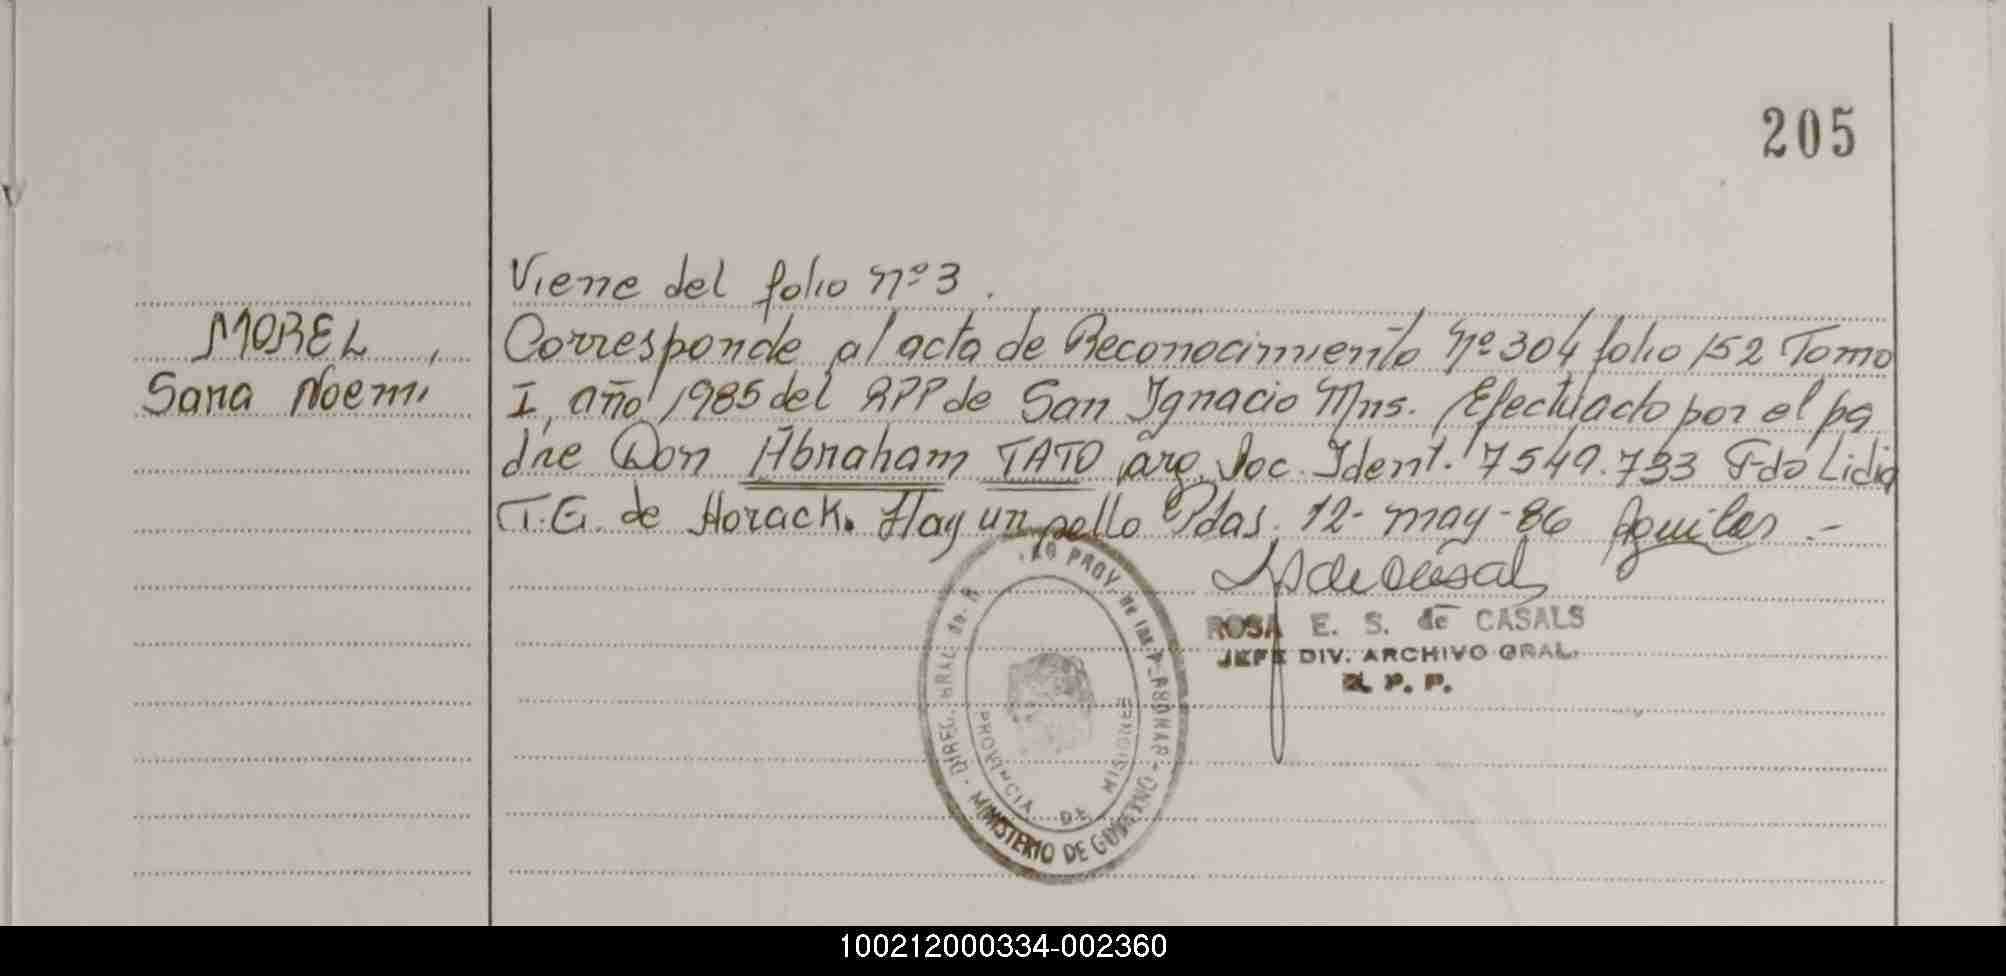 205
Viene del folio Nº 3.
MOREL,
Sara Noemi
Corresponde al acta de Reconocimiento Nº 304 folio 152 Tomo
I, año 1985 del RPP de San Ignacio Mns. Efectuado por el pa
dre Don Abraham TATO arg. Doc. Ident. 7549.733 F-do Lidia
T.G. de Horack. Hay un sello Pdas. 12-may-86 Aguilar.-
ROSA E. S. de CASALS
JEFE DIV. ARCHIVO GRAL.
R. P. P.
PROVINCIA DE MISIONES
MINISTERIO DE GOBIERNO
100212000334-002360